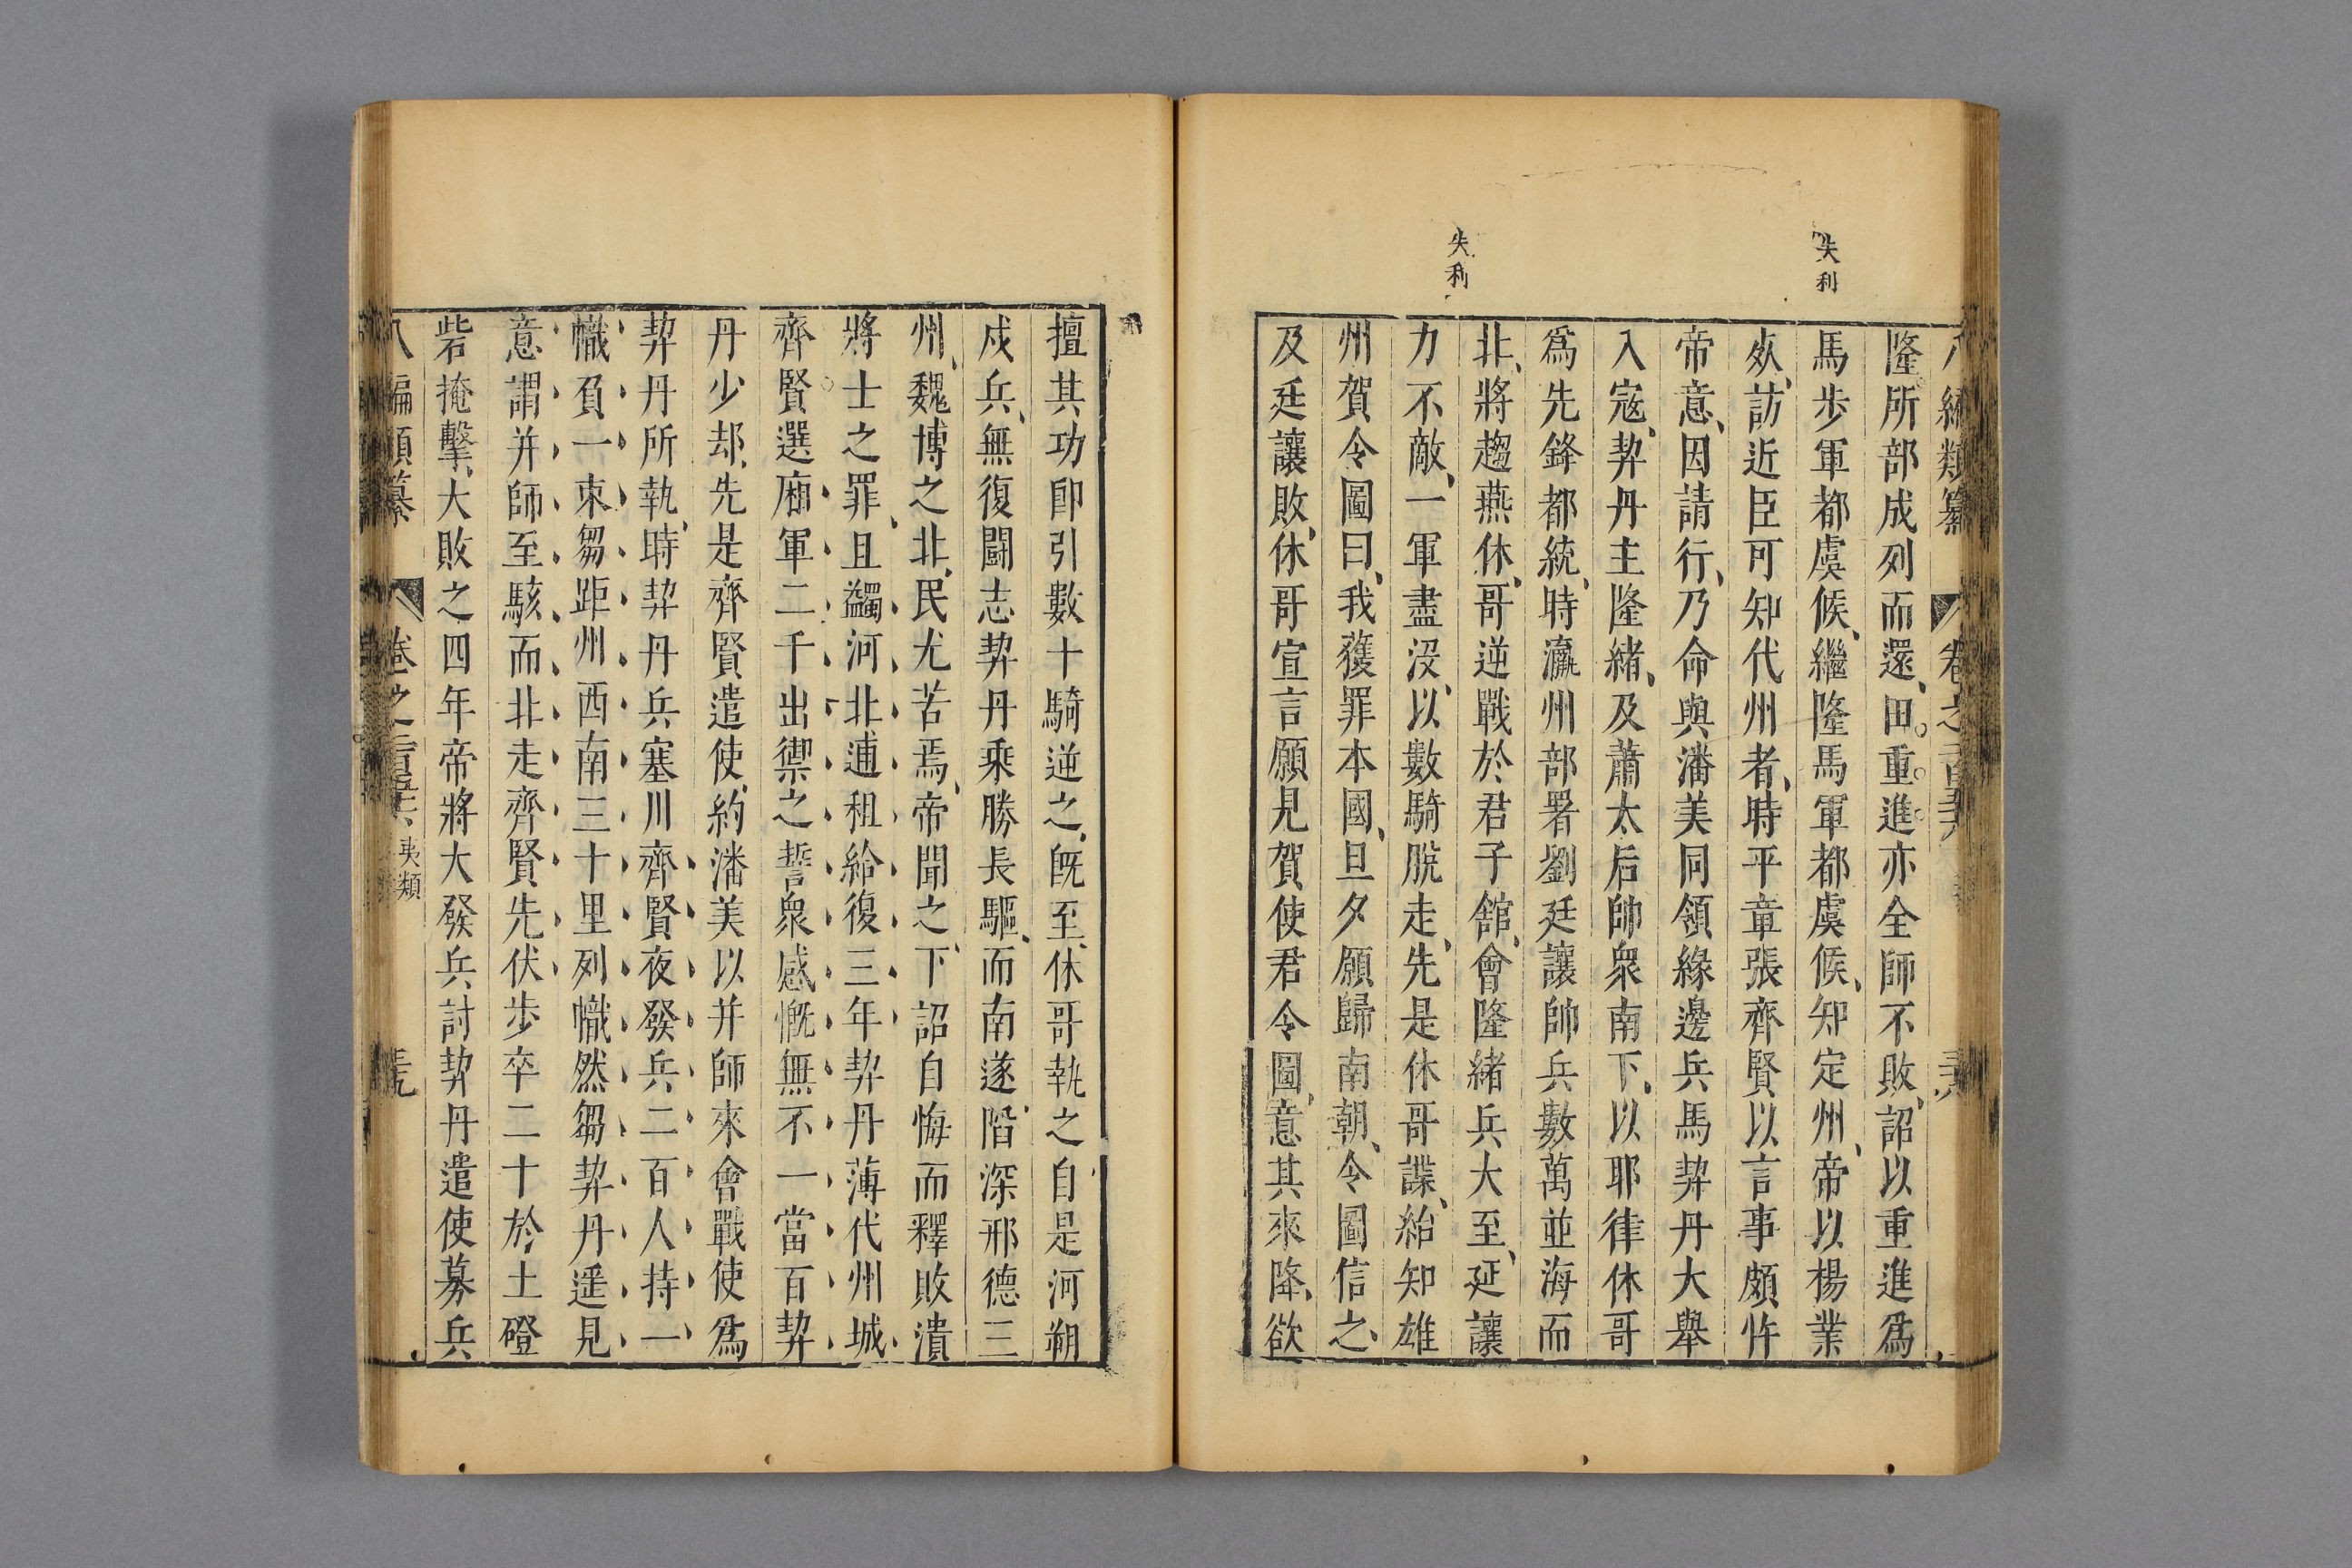 失利
失利
隆所部成列而還田重進亦全師不敗詔以重進爲
馬步軍都虞候繼隆馬軍都虞候知定州帝以楊業
歿訪近臣可知代州者時平章張齊賢以言事頗忤
帝意因請行乃命與潘美同領緣邊兵馬契丹大舉
入寇契丹主隆緒及蕭太后帥衆南下以耶律休哥
爲先鋒都統時瀛州部署劉廷讓帥兵數萬並海而
北將趨燕休哥逆戰於君子舘會隆緒兵大至延讓
力不敵一軍盡沒以數騎脫走先是休哥諜紿知雄
州賀令圖曰我獲罪本國旦夕願歸南朝令圖信之
及廷讓敗休哥宣言願見賀使君令圖意其來降欲
擅其功卽引數十騎逆之旣至休哥執之自是河朔
戍兵無復鬪志契丹乘勝長驅而南遂陷深邢德三
州魏博之北民尤苦焉帝聞之下詔自悔而釋敗潰
將士之罪且蠲河北逋租給復三年契丹薄代州城
齊賢選廂軍二千出禦之誓衆感慨無不一當百契
丹少却先是齊賢遣使約潘美以并師來會戰使爲
契丹所執時契丹兵塞川齊賢夜發兵二百人持一
幟負一束芻距州西南三十里列幟然芻契丹遥見
意謂并師至駭而北走齊賢先伏步卒二千於土磴
砦掩擊大敗之四年帝將大發兵討契丹遣使募兵
八編類纂 卷之 夷類